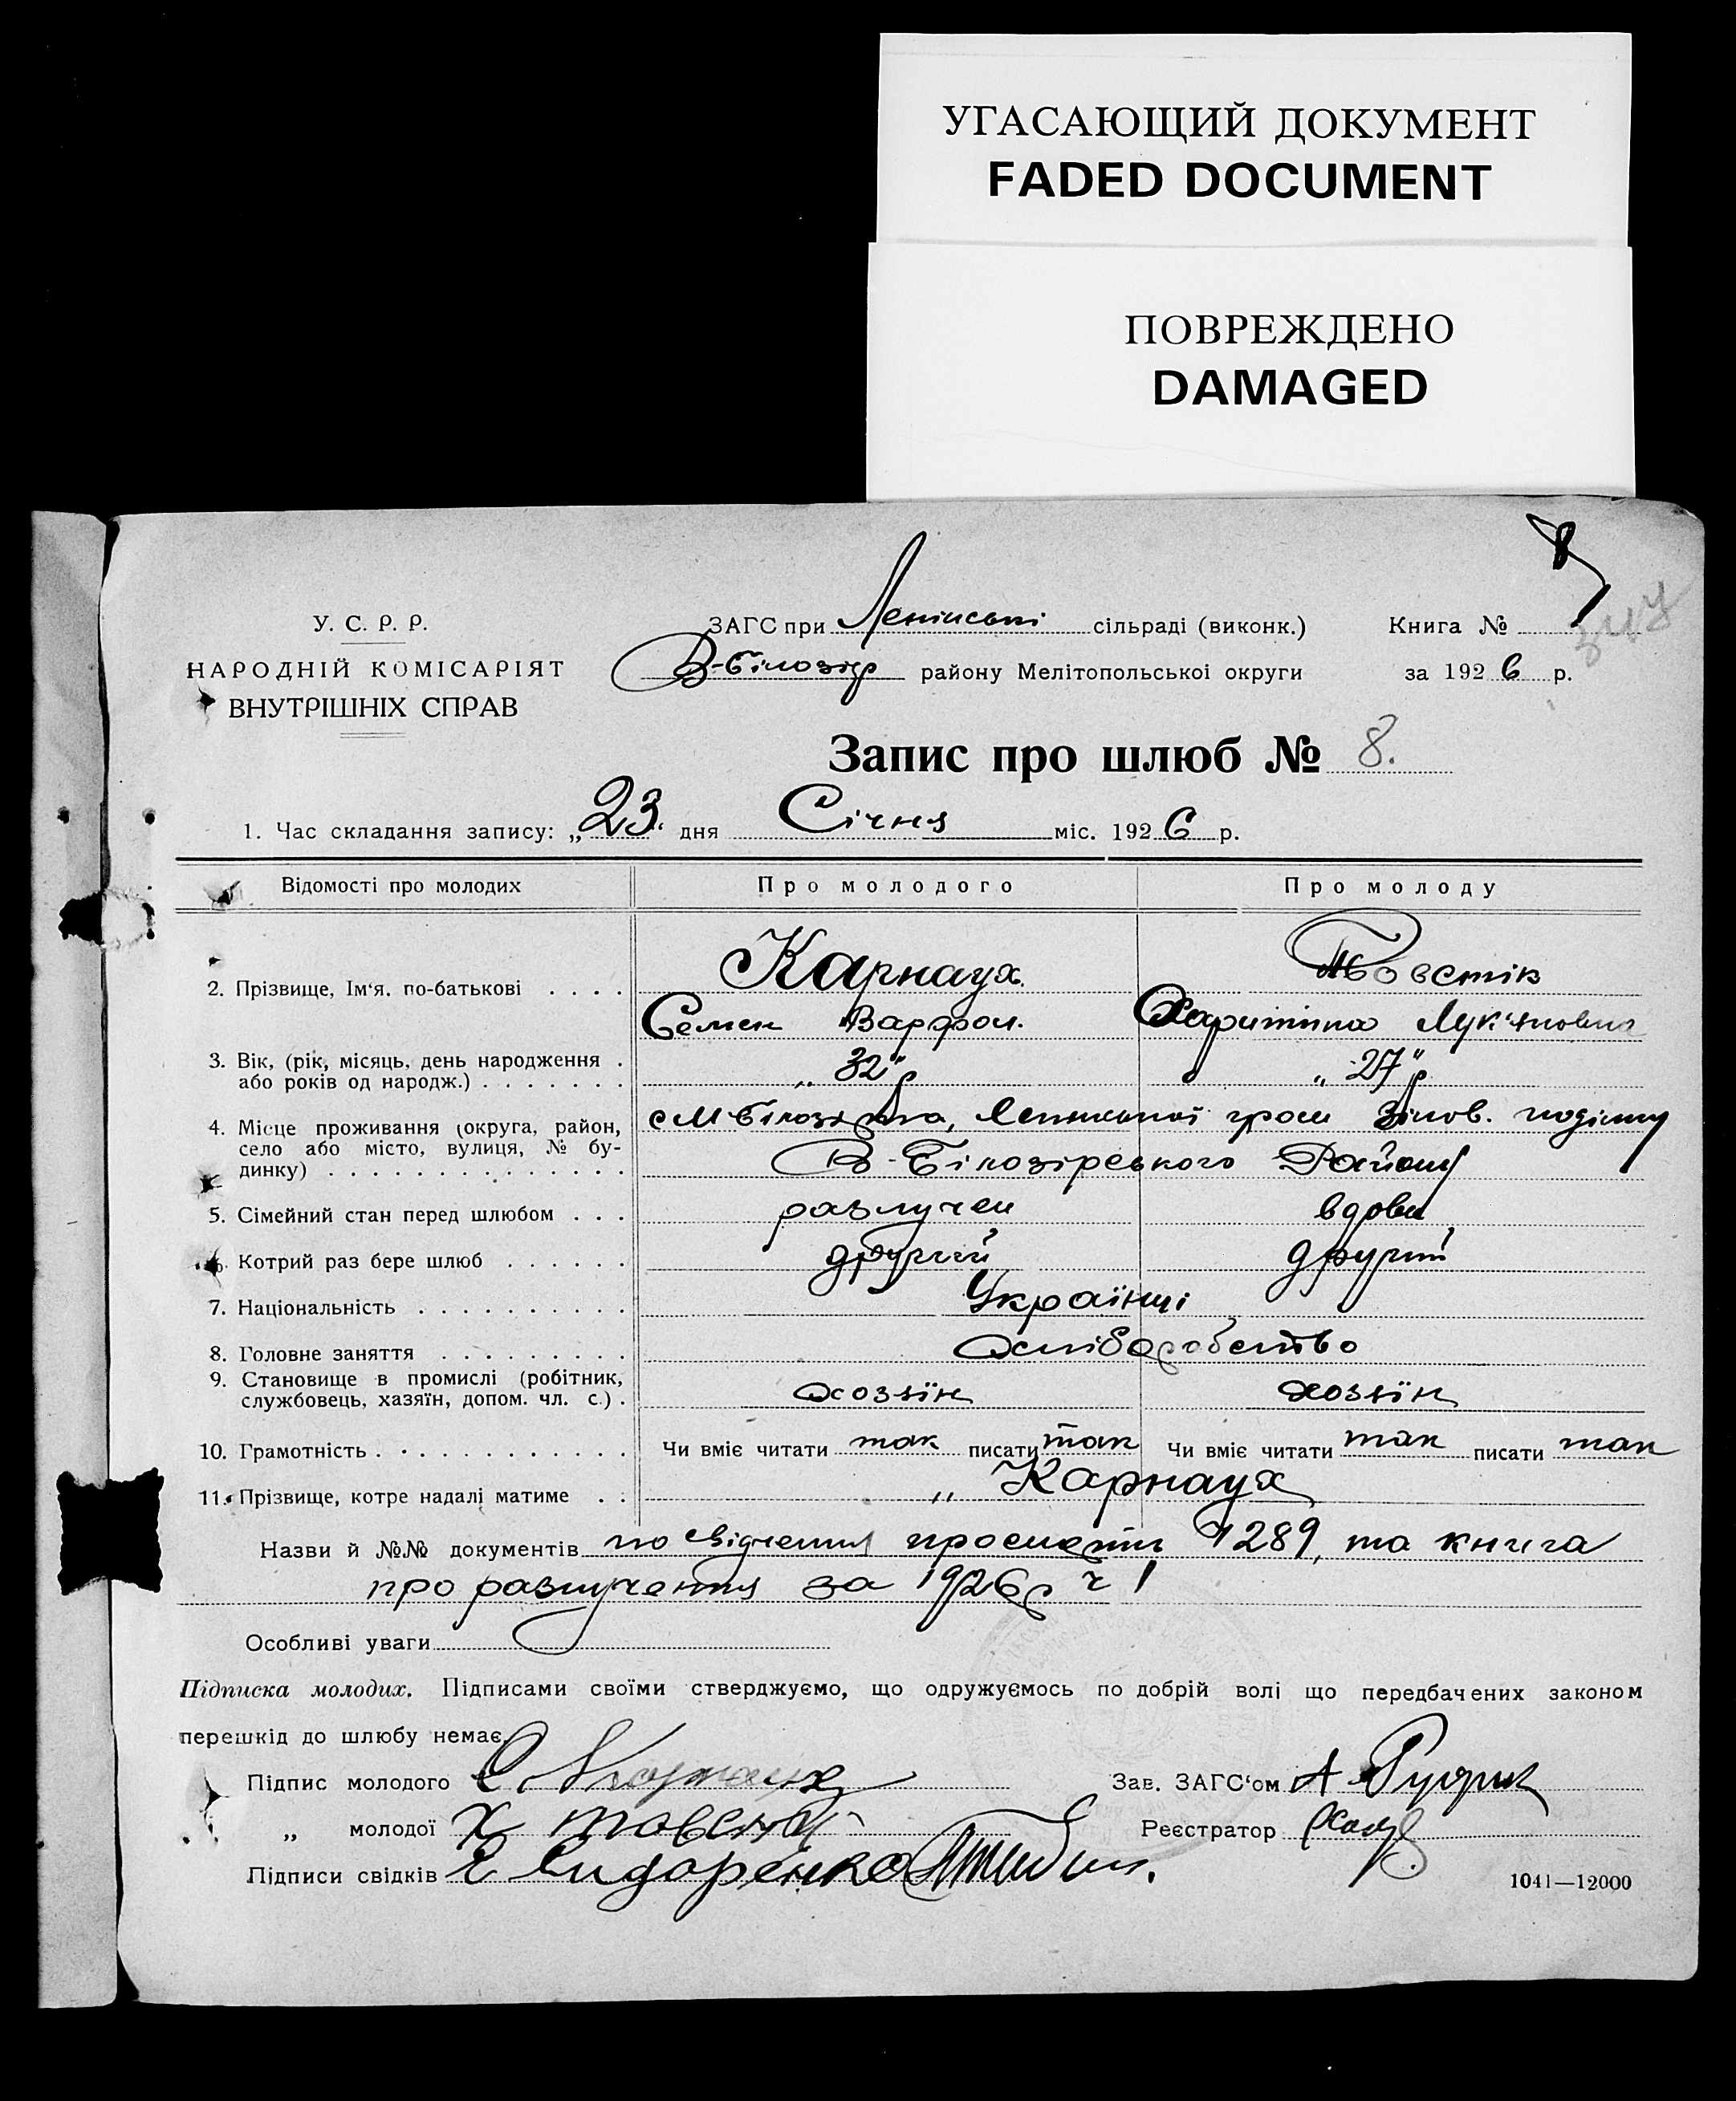 УГАСАЮЩИЙ ДОКУМЕНТ
FADED DOCUMENT
ПОВРЕЖДЕНО
DAMAGED
8
У. С. Р. Р.
НАРОДНІЙ КОМІСАРІЯТ
ВНУТРІШНІХ СПРАВ
ЗАГС при Ленінські сільраді (виконк.)
В-Білозір району Мелітопольської округи
Книга №
за 1926 р.
Запис про шлюб № 8.
1. Час складання запису: „23“ дня Січня міс. 1926 р.
Відомості про молодих Про молодого Про молоду
2. Прізвище, Ім'я. по-батькові . . . . Карнаух Товстік
Семен Варфол. Харитіна Лук'яновна
3. Вік, (рік, місяць, день народження . або років од народж.) . . . . . . . „32“ р „27“ р
4. Місце проживання (округа, район, село або місто, вулиця, № будинку) . . . . . . . . . . . . . .
В-Білозірського Району
5. Сімейний стан перед шлюбом . . . разлучен вдова
6. Котрий раз бере шлюб . . . . . . другий другий
7. Національність . . . . . . . . . . Українці
8. Головне заняття . . . . . . . . . хліборобство
9. Становище в промислі (робітник, службовець, хазяїн, допом. чл. с.) . хозяїн хозяїн
10. Грамотність . . . . . . . . . . . . Чи вміє читати так писати так Чи вміє читати так писати так
11. Прізвище, котре надалі матиме . . „ Карнаух
Назви й №№ документів посвідчення 1289, та книга
про разлучення за 1926 р ч 1
Особливі уваги
Підписка молодих. Підписами своїми стверджуємо, що одружуємось по добрій волі що передбачених законом
перешкід до шлюбу немає.
Підпис молодого С Карнаух Зав. ЗАГС'ом А
„ молодої Х Реєстратор
Підписи свідків Е Сидоренко
1041—12000